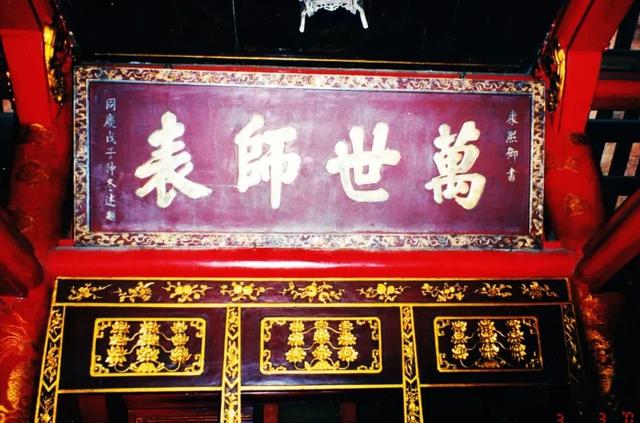 康熙御書
萬世師表
同慶戊子仲冬述題